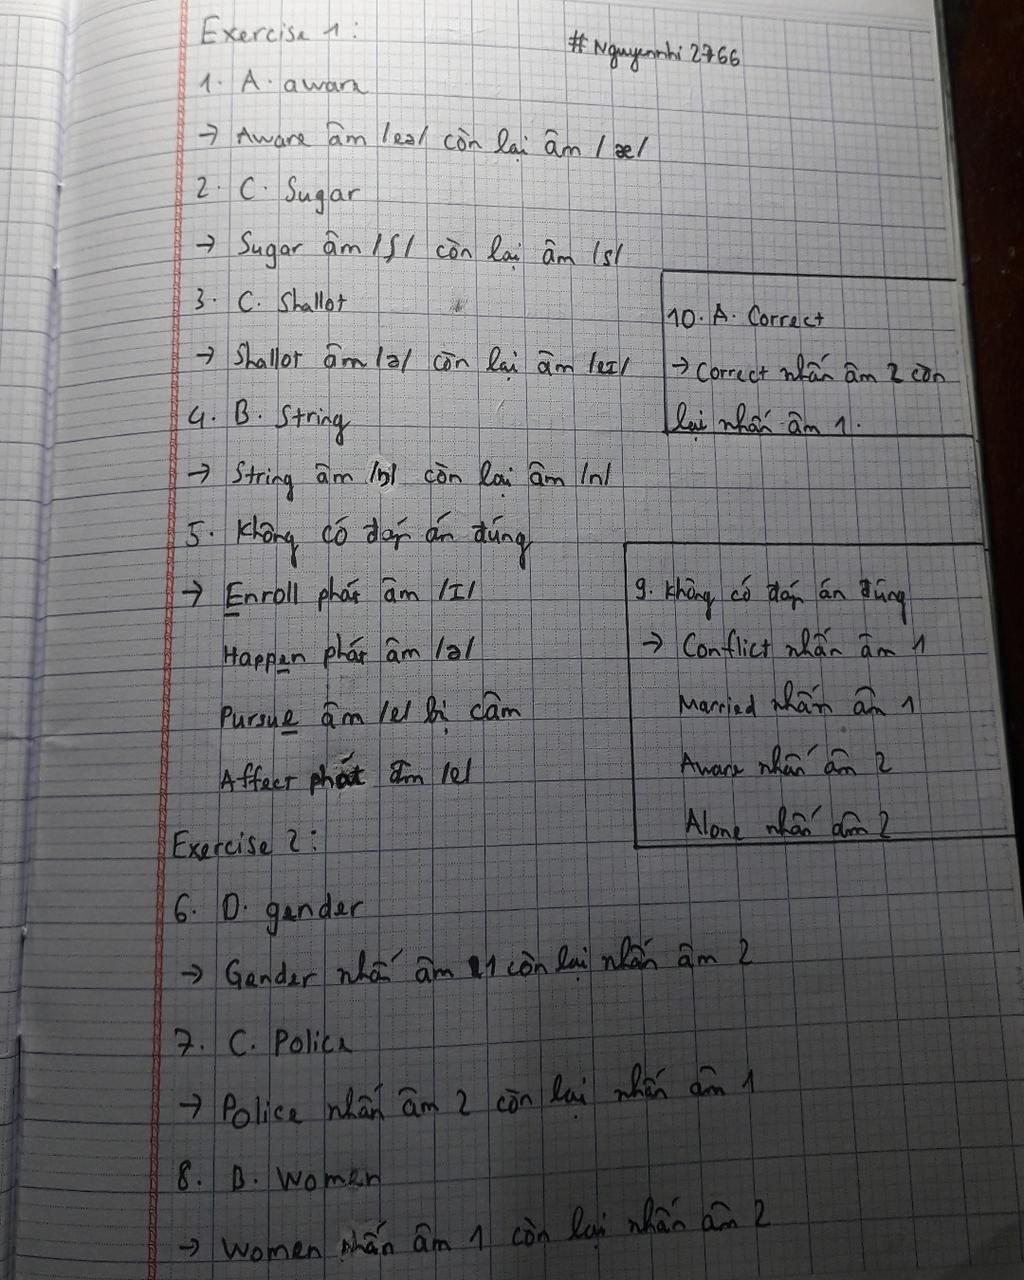 Exercise 1:
#Nguyennhi2766
1. A. aware
→ Aware âm /eə/ còn lại âm /æ/
2. C. Sugar
→ Sugar âm /ʃ/ còn lại âm /s/
3. C. Shallot
→ Shallot âm /ə/ còn lại âm /eɪ/
4. B. String
→ String âm /ŋ/ còn lại âm /n/
5. Không có đáp án đúng
→ Enroll phát âm /I/
Happen phát âm /ə/
Pursue âm /e/ bị câm
Affect phát âm /e/
Exercise 2:
6. D. gender
→ Gender nhấn âm 1 còn lại nhấn âm 2
7. C. Police
→ Police nhấn âm 2 còn lại nhấn âm 1
8. B. Women
→ Women nhấn âm 1 còn lại nhấn âm 2
9. Không có đáp án đúng
→ Conflict nhấn âm 1
Married nhấn âm 1
Aware nhấn âm 2
Alone nhấn âm 2
10. A. Correct
→ Correct nhấn âm 2 còn
lại nhấn âm 1.